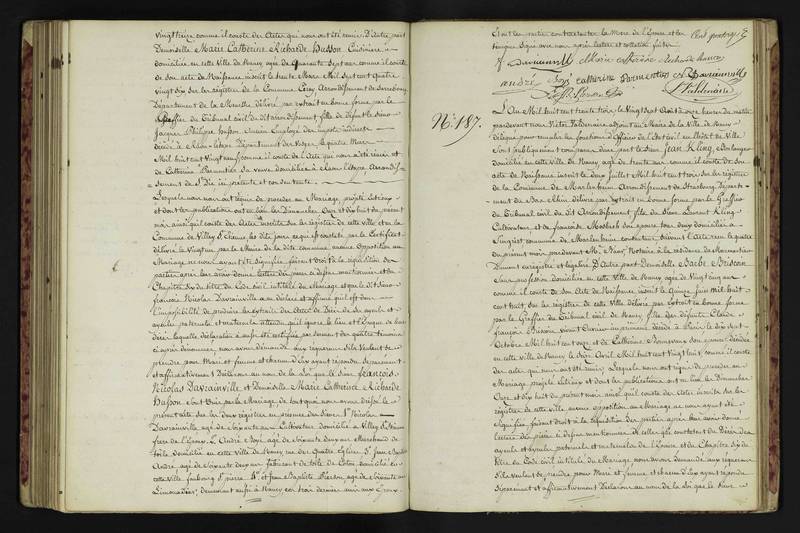 vingt treize comme il conste des Actes qui nous ont été remis D'autre part
Demoiselle Marie Catherine Richarde Husson Cuisinière
domiciliée en cette Ville de Nancy agée de quarante sept ans comme il conste
de son acte de Naissance inscrit le trente Mars Mil sept cent quatre
vingt dix sur les registres de la Commune Arrondissement de Sarrebourg
Département de la Meurthe délivré par extrait en bonne forme par le
Greffier du Tribunal civil du dit arrondissement fille de défunt le Sieur
Jacques Philippe Husson ancien Employé des impots indirects
décédé à Département des Vosges le quatre Mars
Mil huit cent vingt neuf comme il conste de l'Acte qui nous a été remis et
de Catherine Parmentier sa veuve domiciliée à Arrondis=
=sement de St Dié ici présente et consentante
Lesquels nous ont requis de procéder au Mariage projeté entre eux
et dont les publications ont eu lieu les Dimanches Onze et dix huit du présent
mois ainsi qu'il conste des Actes inscrits sur les registres de cette ville et en la
Commune de Villey St Etienne les dits jours ce qui est constaté par le Certificat
délivré le Vingt un par le Maire de la dite commune, aucune opposition au
Mariage ne nous ayant été signifiée, faisant Droit à la réquisition des
parties après leur avoir donné lecture des pièces ci dessus mentionnées et du
Chapitre Six du titre du Code civil intitulé du Mariage et que le dit Sieur
françois Nicolas Davrainville a déclaré et affirmé qu'il est dans
l'impossibilité de produire les extraits des Actes de Décès de ses ayeuls et
ayeules paternels et maternels attendu qu'il ignore le lieu et l'époque de leur
décès laquelle déclaration a aussi été certifiée par serment des quatre témoins
ci après dénommés, nous avons demandé aux requérans s'ils veulent se
prendre pour Mari et femme et chacun d'eux ayant répondu séparément
et affirmativement Déclarons au nom de la Loi que le Sieur françois
Nicolas Davrainville et Demoiselle Marie Catherine Richarde
Husson sont Unis par le Mariage, de tout quoi nous avons dressé le
présent acte sur les deux registres en présence des Sieurs 1° Nicolas
Davrainville agé de soixante ans Cultivateur domicilié à Villey St Etienne
frère de l'Epoux 2° André agé de soixante deux ans Marchand de
toile domicilié en cette Ville de Nancy rue des quatre Eglises 3° Jean
André agé de soixante deux ans fabricant de toile de Coton domicilié en
cette Ville faubourg St pierre 4° et Jean Baptiste Pierson agé de soixante
Limonadier, demeurant aussi à Nancy ces trois derniers amis aux Epoux
Et ont les parties contractantes la Mère de l'Epouse et les
témoins Signé avec nous après lecture et collation faites
f Davrainville Marie catherine Richarde husson
andré catherine Parmentier N Davrainville
Pierson Valdenaire
N° 187.
L'An Mil huit cent trente trois le Vingt sept Août à onze heures du matin
pardevant nous Victor Valdenaire adjoint au Maire de la Ville de Nancy
délégué pour remplir les fonctions d'Officier de l'Etat civil en l'hôtel de Ville
sont publiquement comparus d'une part le Sieur Jean Kling, Boulanger
domicilié en cette ville de Nancy agé de trente ans comme il conste de son
acte de Naissance inscrit le deux Juillet Mil huit cent trois sur les registres
de la Commune de Marlenheim Arrondissement de Strasbourg départe=
=ment du Bas Rhin délivré par extrait en bonne forme par le Greffier
du Tribunal civil du dit Arrondissement fils du Sieur Laurent Kling
Cultivateur, et de françoise son épouse tous deux domiciliés à
commune de Marlenheim contentement suivant l'acte reçu le quatre
du présent mois pardevant Me Notaire à la résidence de
Dument enregistré et légalisé D'Autre part Demoiselle Barbe Briscon
Sans profession domiciliée en cette Ville de Nancy agée de vingt cinq ans
comme il conste de son Acte de Naissance inscrit le quinze Juin Mil huit
cent huit, sur les registres de cette Ville délivré par extrait en bonne forme
par le Greffier du Tribunal civil de Nancy, fille des défunts Claude
françois Briscon vivant Ouvrier imprimeur, décédé à Paris le dix sept
Octobre Mil huit cent onze et de Catherine son épouse décédée
en cette ville de Nancy le Onze Avril Mil huit cent vingt huit, comme il conste
des actes qui nous ont été remis Lesquels nous ont requis de procéder au
Mariage projeté entre eux et dont les publications ont eu lieu les Dimanches
Onze et dix huit du présent mois ainsi qu'il conste des Actes inscrits sur les
registres de cette ville, aucune opposition au Mariage ne nous ayant été
signifiée, faisant droit à la réquisition des parties après leur avoir donné
lecture des pièces ci dessus mentionnées de celles qui constatent le Décès des
ayeuls et ayeules paternels et maternels de l'Epouse et du Chapitre Six du
titre du Code civil intitulé du Mariage nous avons demandé aux requérans
s'ils veulent se prendre pour Mari et femme et chacun d'eux ayant répondu
séparément et affirmativement Déclarons au nom de la Loi que le Sieur